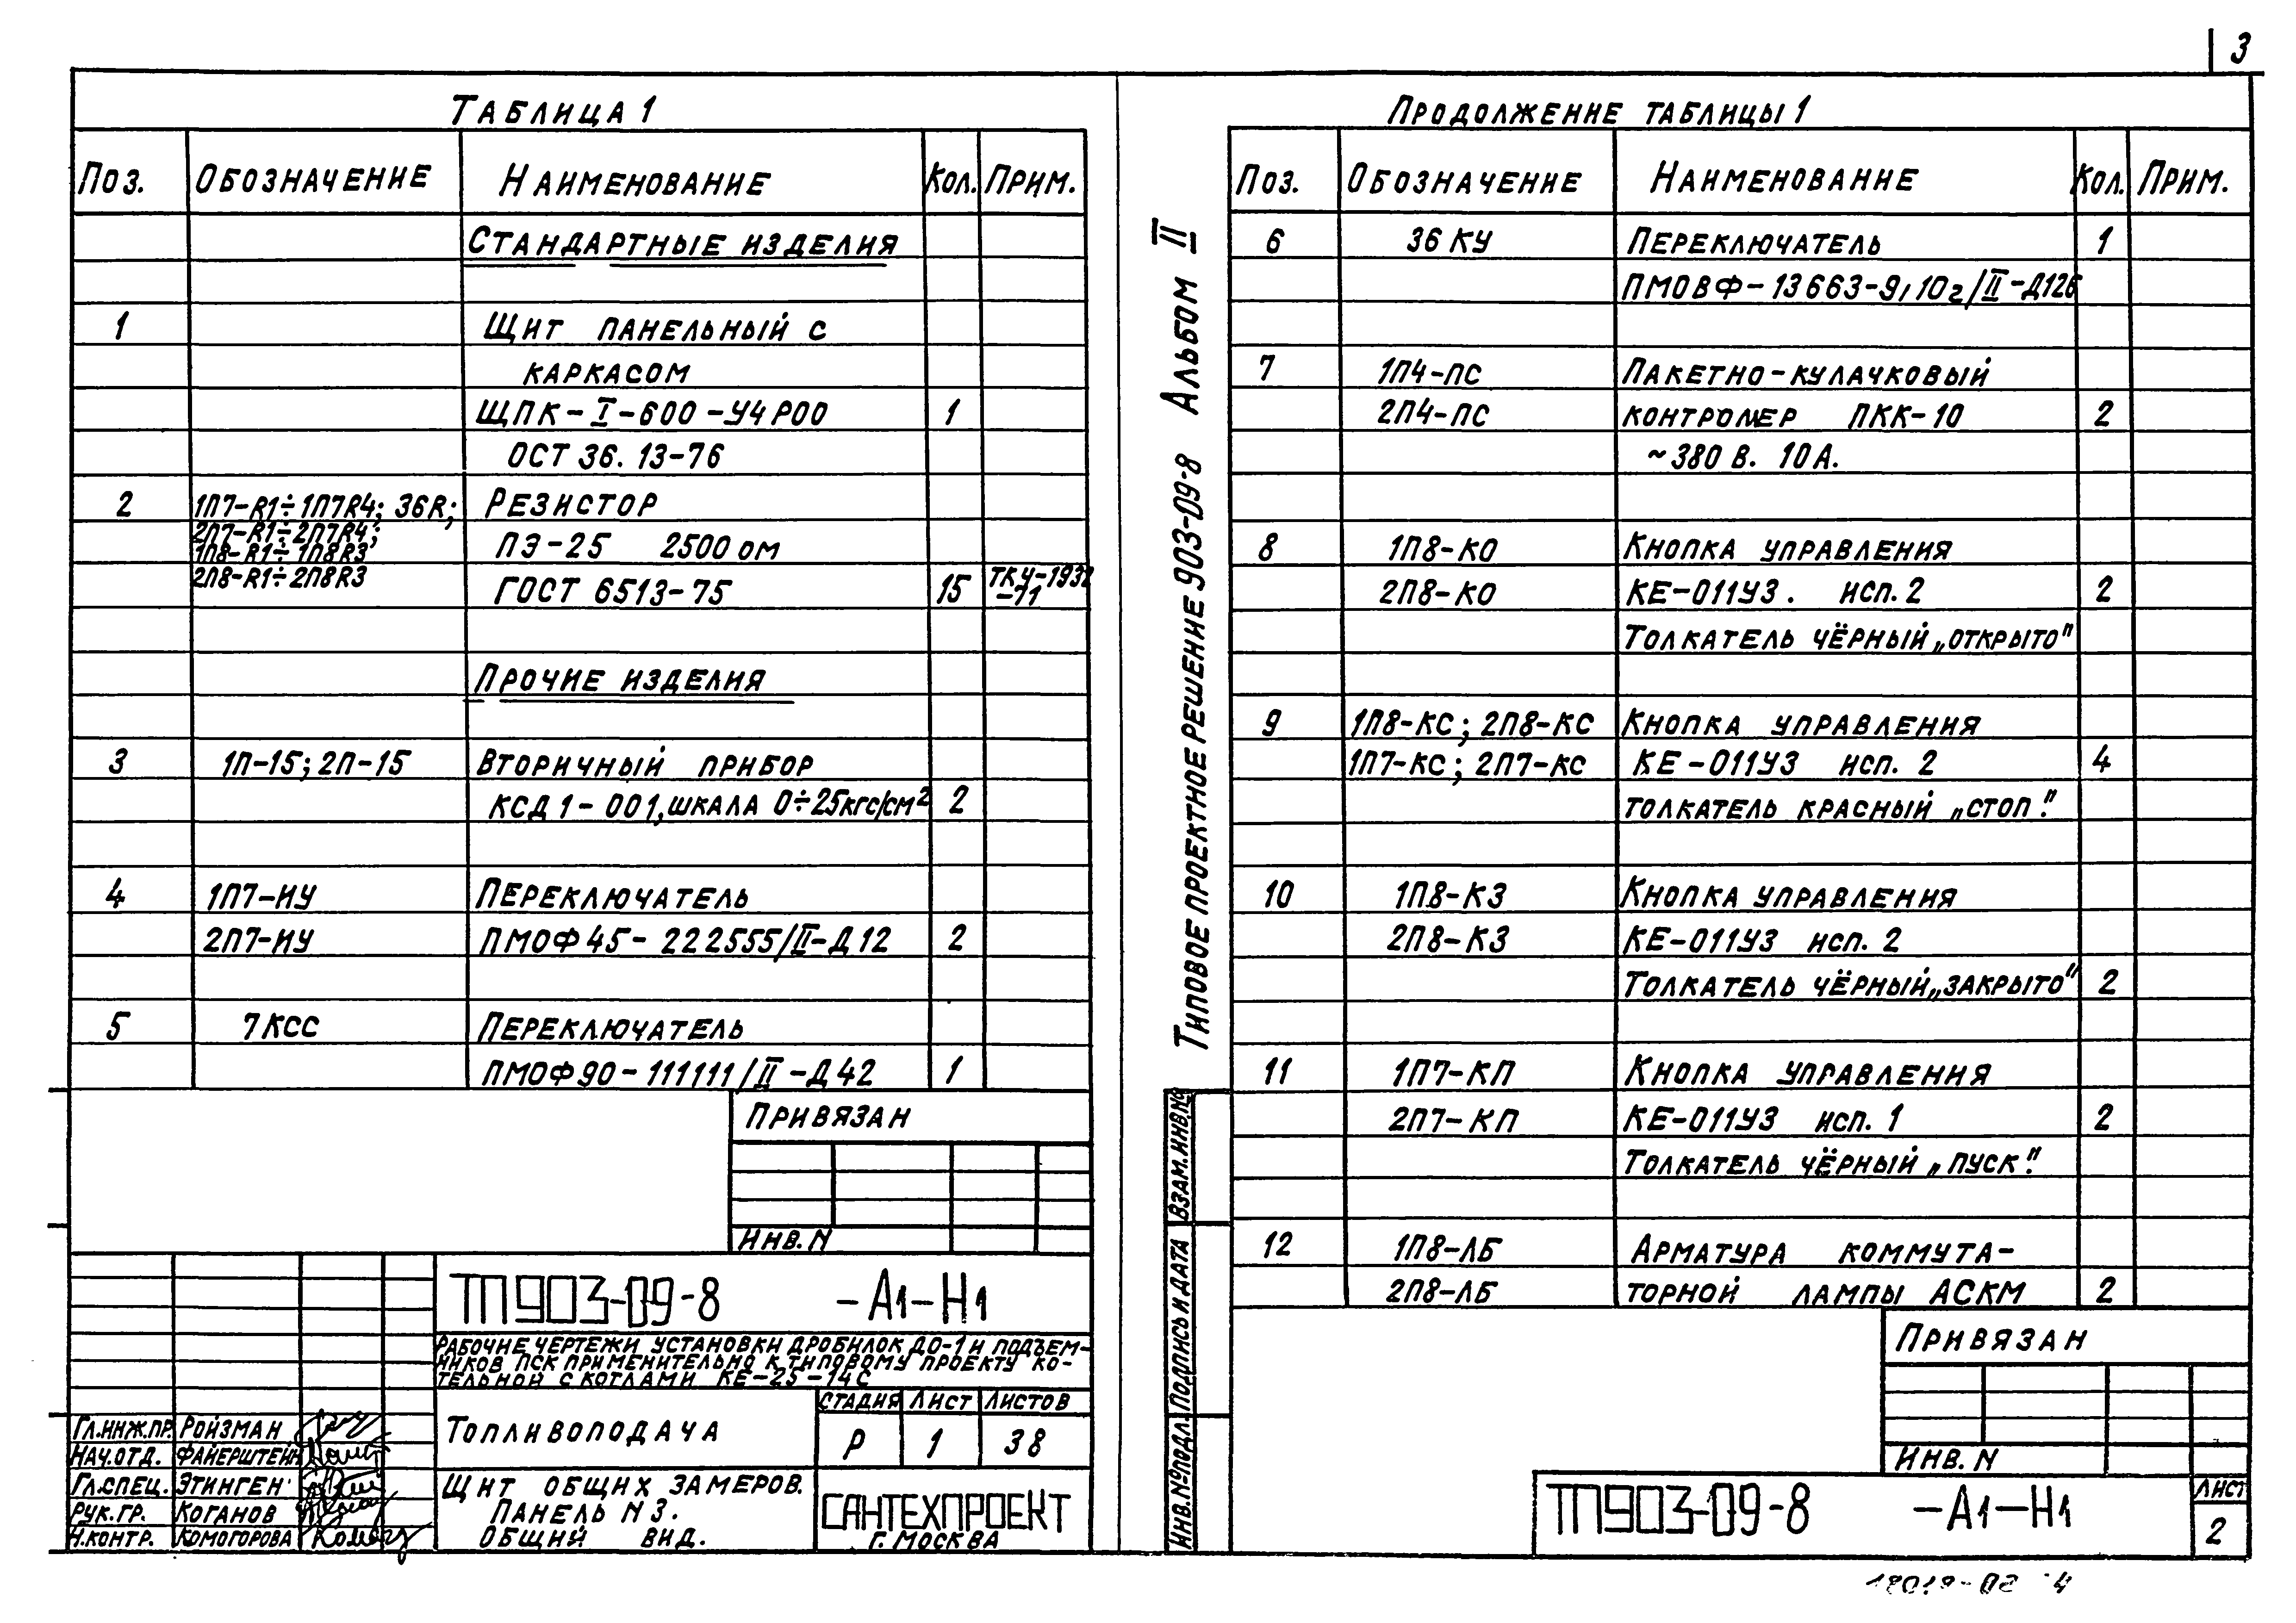 3
Таблица 1
Поз. Обозначение Наименование Кол. Прим.
Стандартные изделия
1 Щит панельный с
каркасом
ЩПК-I-600-У4Р00 1
ОСТ 36.13-76
2 1П7-R1÷1П7R4; 36R; Резистор
2П7-R1÷2П7R4;
1П8-R1÷1П8R3 ПЭ-25 2500 ом
2П8-R1÷2П8R3 ГОСТ 6513-75 15
Прочие изделия
3 1П-15; 2П-15 Вторичный прибор
КСД1-001, шкала 0÷25кгс/см² 2
4 1П7-ИУ Переключатель
2П7-ИУ ПМОФ45-222555/II-Д12 2
5 7КСС Переключатель
ПМОФ90-111111/II-Д42 1
Привязан
Инв. N
ТП903-09-8 -А1-Н1
Рабочие чертежи установки дробилок ДО-1 и подъем-
ников ПСК применительно к типовому проекту ко-
тельной с котлами КЕ-25-14С
Топливоподача
Стадия Лист Листов
Р 1 38
Гл.инж.пр. Ройзман
Нач.отд. Файерштейн
Гл.спец. Этинген
Рук.гр. Коганов
Н.контр. Комогорова
Щит общих замеров.
Панель N3.
Общий вид.
САНТЕХПРОЕКТ
г. Москва
Типовое проектное решение 903-09-8 Альбом II
Взам.инв.№
Подпись и дата
Инв.№подл.
Продолжение таблицы 1
Поз. Обозначение Наименование Кол. Прим.
6 36КУ Переключатель 1
ПМОВФ-13663-9,10г/II-Д126
7 1П4-ПС Пакетно-кулачковый
2П4-ПС контролер ПКК-10 2
~380 В. 10А.
8 1П8-КО Кнопка управления
2П8-КО КЕ-011У3. исп. 2 2
Толкатель чёрный „открыто"
9 1П8-КС; 2П8-КС Кнопка управления
1П7-КС; 2П7-КС КЕ-011У3 исп. 2 4
толкатель красный „стоп".
10 1П8-КЗ Кнопка управления
2П8-КЗ КЕ-011У3 исп. 2
Толкатель чёрный „закрыто" 2
11 1П7-КП Кнопка управления
2П7-КП КЕ-011У3 исп. 1 2
Толкатель чёрный „пуск".
12 1П8-ЛБ Арматура коммута-
2П8-ЛБ торной лампы АСКМ 2
Привязан
Инв. N
ТП903-09-8 -А1-Н1
Лист
2